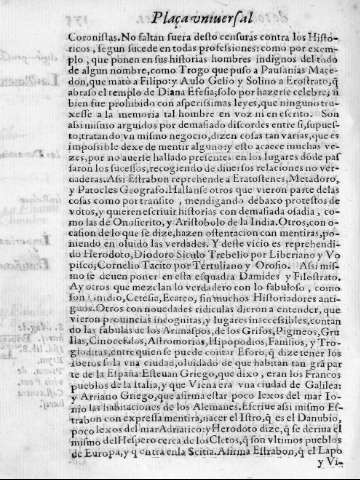 Plaça vniuersal
Coronistas. No faltan fuera desto censuras contra los Histo-
ricos, segun sucede en todas profesiones: como por exem-
plo, que ponen en sus historias hombres indignos del todo
de algun nombre, como Trogo que puso a Pausanias Mace-
don, que matò a Filipo: y Aulo Gelio y Solino a Erostrato, q̃
abrasò el templo de Diana Efesia, solo por hazerse celebre; ñ
bien fue prohibido con asperissimas leyes, que ninguno tru-
xesse a la memoria tal hombre en voz ni en escrito. Son
assi mismo arguidos por demasiado discordes entre si, pues-
to, tratando vn mismo negocio, dizen cosas tan varias, que es
impossible dexe de mentir alguno: y esto acaece muchas ve-
zes, por no auerse hallado presentes en los lugares dõde pas-
saron los sucessos, recogiendo de diuersos relaciones no ver-
daderas. Assi Estrabon reprehende a Eratostenes, Metadoro,
y Patocles Geografo. Hallanse otros que vieron parte de las
cosas como por transito, mendigando debaxo pretestos de
votos, y quieren escriuir historias con demasiada osadia, co-
mo las de Onosicrito, y Aristobolo de la India. Otros, con o-
casion de lo que se dize, hazen ostentacion con mentiras, po-
niendo en oluido las verdades. Y deste vicio es reprehendi-
do Herodoto, Diodoro Siculo Trebelio por Liberiano y Vo
pisco; Cornelio Tacito por Tertuliano y Orosio. Assi mis-
mo se deuen poner en esta esquadra Damides y Filostrato.
Ay otros que mezclan lo verdadero con lo fabuloso, como
son Gnidio, Cetesia, Ecateo, sin muchos Historiadores anti-
guos. Otros con nouedades ridiculas dieron a entender, que
vieron prouincias incognitas, y lugares inaccessibles, contan
do las fabulas de los Arimaspos, de los Grifos, Pigmeos, Gru-
llas, Cinocefalos, Astromorias, Hipopodios, Familios, y Tro-
gloditas, entre quien se puede contar Eforo, q̃ dize tener los
Iberos sola vna ciudad, oluidado de que habitan tan grã par
te de la España: Esteuan Griego, que dixo, eran los Francos
pueblos de la Italia, y que Viena era vna ciudad de Galilea:
y Arriano Griego, que afirma estar poco lexos del mar Io-
nio las habitaciones de los Alemanes. Escriue assi mismo Es-
trabon con expressa mentira, nacer el Istro, q̃ es el Danubio,
poco lexos del mar Adriatico: y Herodoto dize, q̃ se deriua el
mismo del Hespero cerca de los Cletos, q̃ son vltimos pueblos
de Europa, y q̃ entra en la Scitia. Afirma Estrabon, q̃ el Lapo
y Vi-